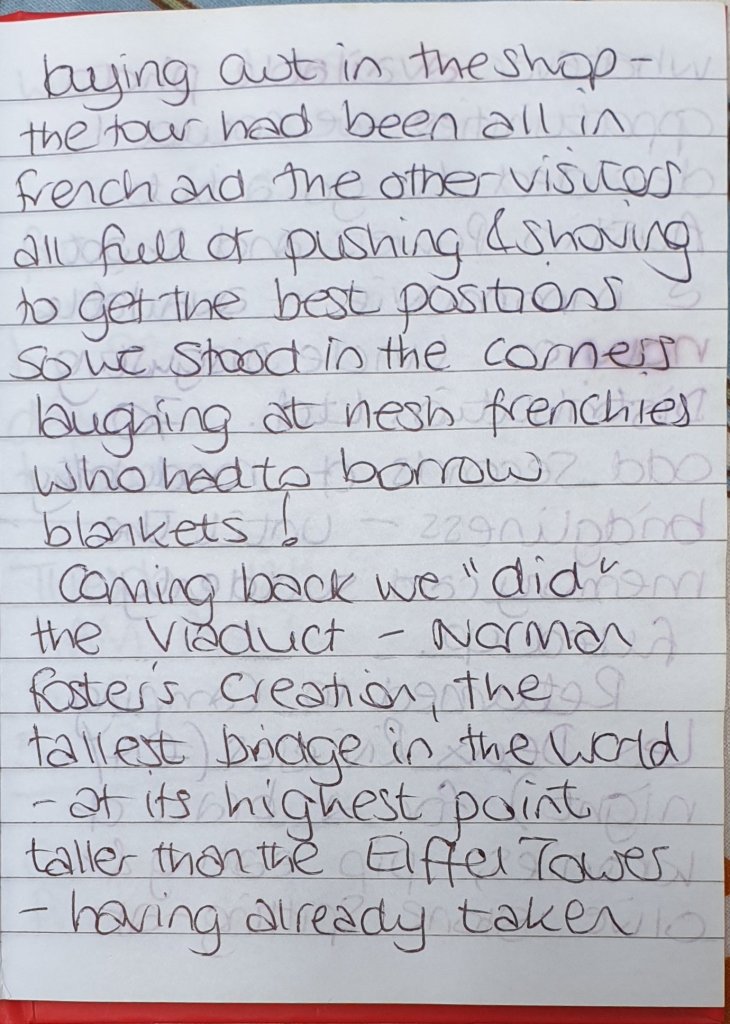 buying out in the shop -
the tour had been all in
french and the other visitors
all full of pushing & shoving
to get the best positions
so we stood in the corners
laughing at nesh frenchies
who had to borrow
blankets!
Coming back we "did"
the Viaduct - Norman
Foster's Creation, the
tallest bridge in the world
- at its highest point
taller than the Eiffel Tower
- having already taken